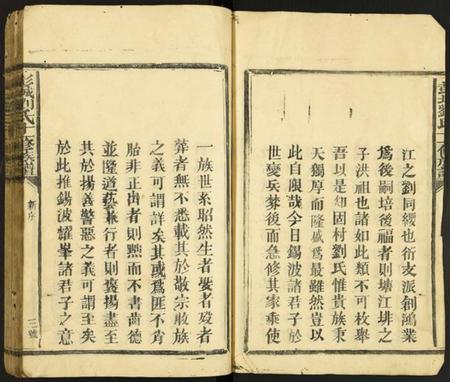 江之劉同緩也衍支派創鴻業
為後嗣培後福者則塘江琲之
子洪祖也諸如此類不可枚舉
吾以是知固村劉氏惟貴族秉
天獨厚而隆盛為最雖然豈以
此自限哉今日錫波諸君子於
世變兵燹後而急修其家乘使
一族世系昭然生者妻者歿者
葬者無不悉載其於敬宗收族
之義可謂詳矣其或為匪不肖
胎非正出者則黜而不書齒德
並隆道藝兼行者則褒揚盡至
其於揚善警惡之義可謂至矣
於此推錫波耀峯諸君子之意
彭城劉氏十修族譜
新序
三號